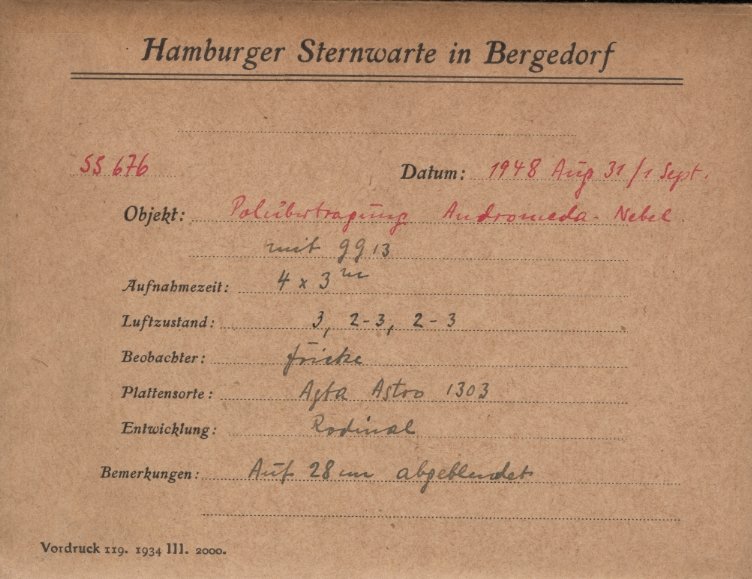 Hamburger Sternwarte in Bergedorf
SS 676 Datum: 1948 Aug 31/1 Sept.
Objekt: Polübertragung Andromeda-Nebel
mit gg 13
Aufnahmezeit: 4 x 3 m
Luftzustand: 3, 2-3, 2-3
Beobachter: Fricke
Plattensorte: Agfa Astro 1303
Entwicklung: Rodinal
Bemerkungen: Auf 28 cm abgeblendet
Vordruck 119. 1934 III. 2000.